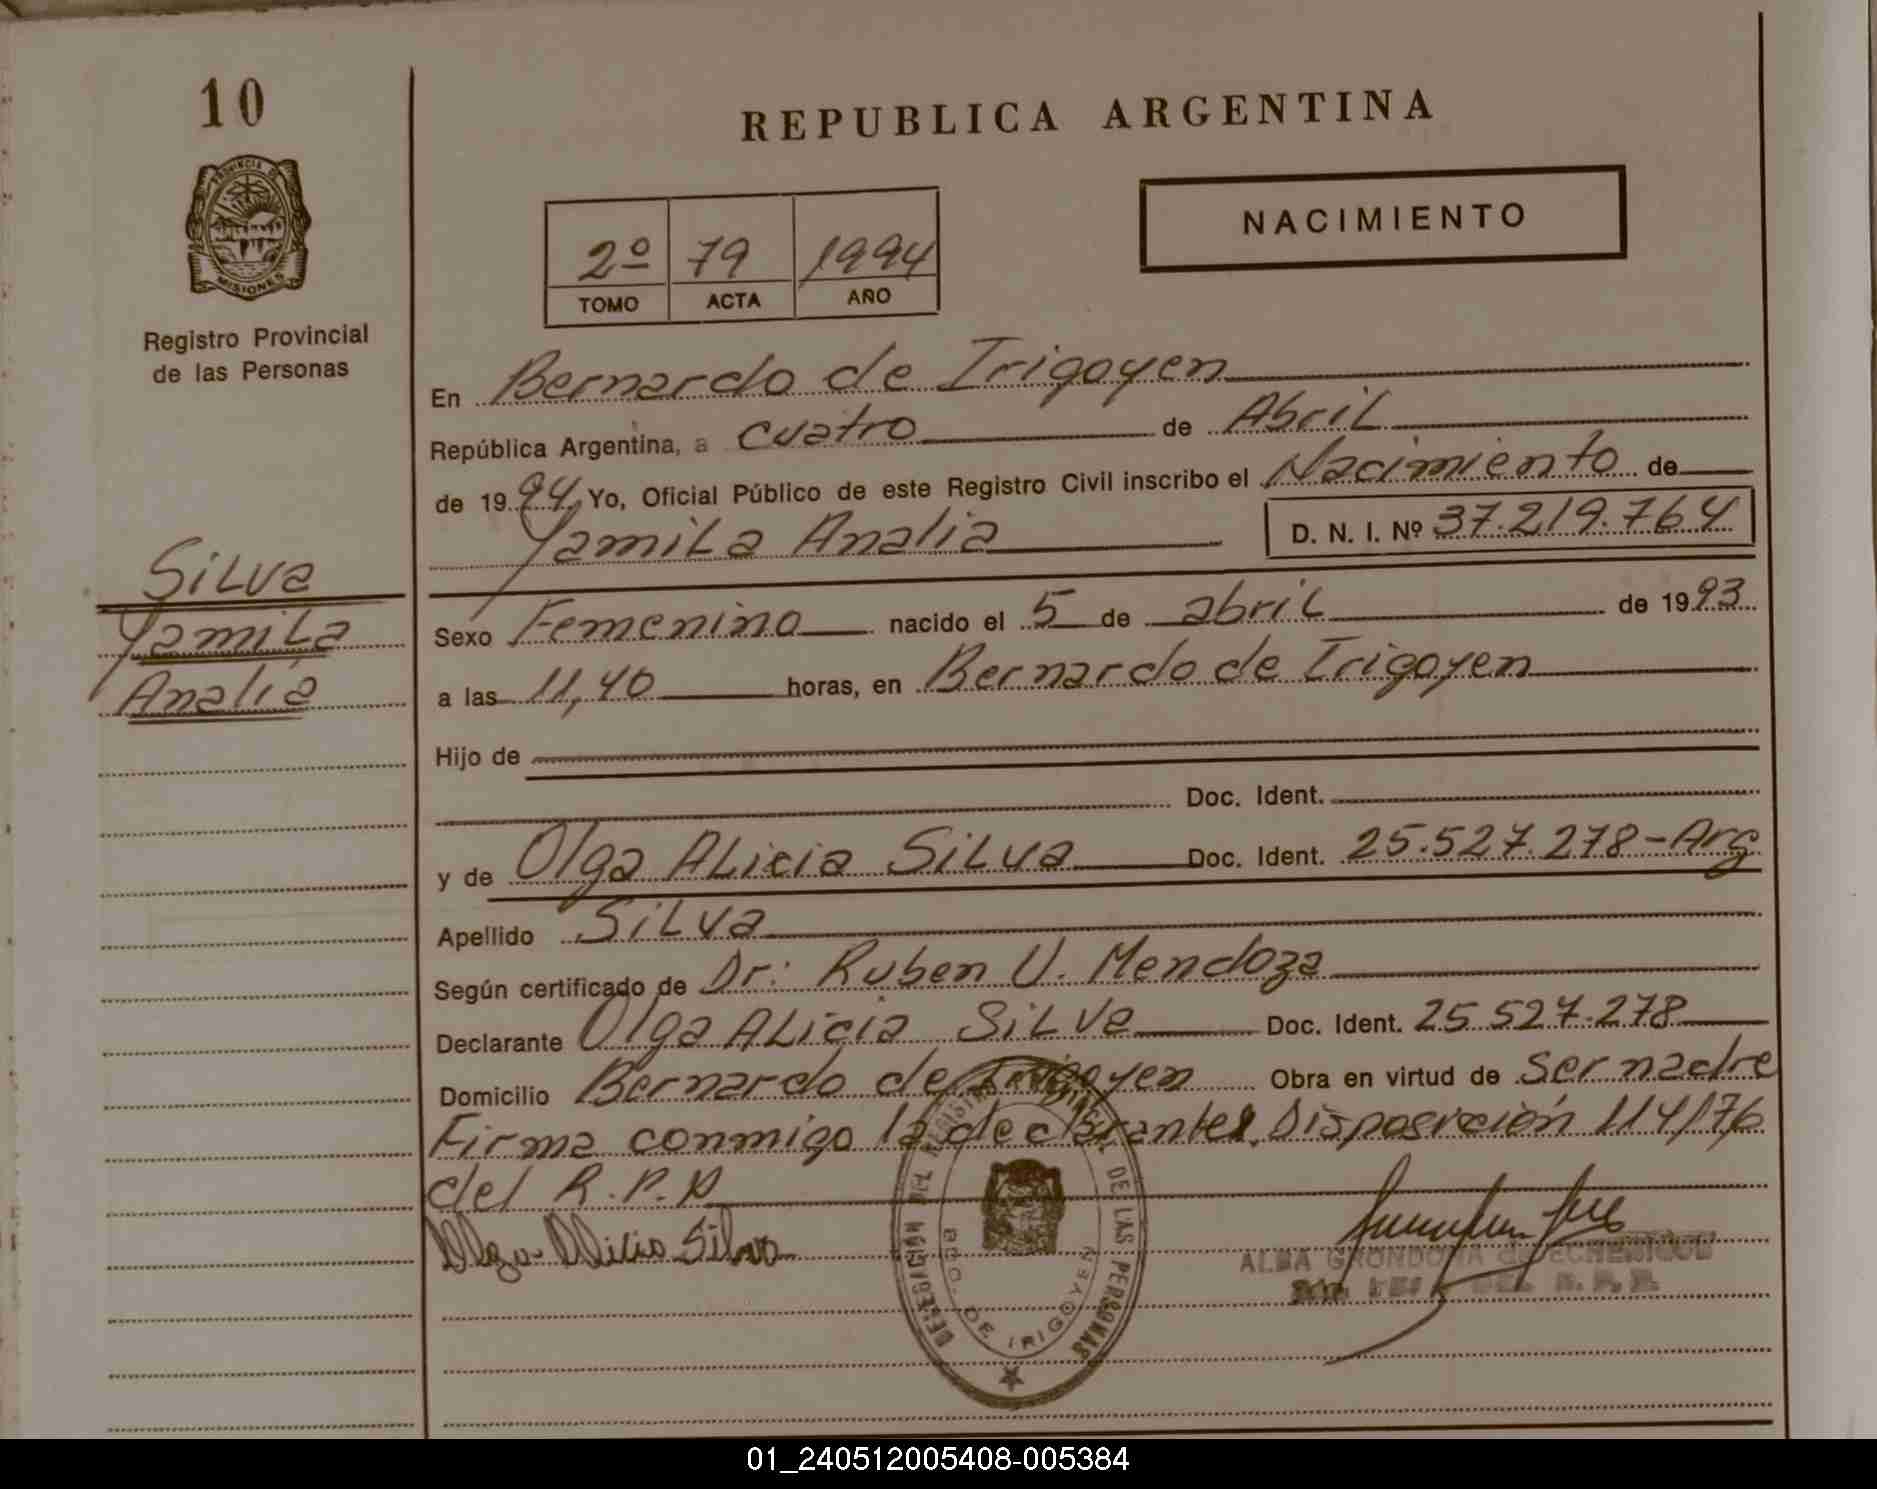 10
PROVINCIA DE
MISIONES
Registro Provincial
de las Personas
Silva
Yamila
Analia
REPUBLICA ARGENTINA
NACIMIENTO
2º 79 1994
TOMO ACTA AÑO
En Bernardo de Irigoyen
República Argentina, a cuatro de Abril
de 1994 Yo, Oficial Público de este Registro Civil inscribo el Nacimiento de
Yamila Analia D. N. I. Nº 37.219.764
Sexo Femenino nacido el 5 de abril de 1993
a las 11,40 horas, en Bernardo de Irigoyen
Hijo de
Doc. Ident.
y de Olga Alicia Silva Doc. Ident. 25.527.278-Arg
Apellido Silva
Según certificado de Dr: Ruben U. Mendoza
Declarante Olga Alicia Silva Doc. Ident. 25.527.278
Domicilio Bernardo de Irigoyen Obra en virtud de ser madre
Firma conmigo la declarante. Disposición 114/76
del R.P.P
Olga Alicia Silva
DELEGACION DEL REGISTRO PROVINCIAL DE LAS PERSONAS
BDO. DE IRIGOYEN
ALBA GRONDONA
DEL R. P. P.
01_240512005408-005384